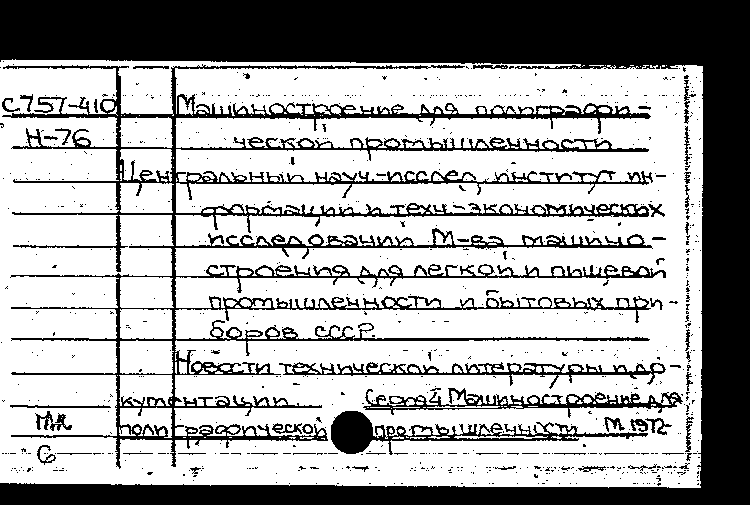 С757-410 Машиностроение для полиграфи-
Н-76 ческой промышленности
Центральный науч.-исслед. институт ин-
формации и техн.-экономических
исследований М-ва машино-
строения для легкой и пищевой
промышленности и бытовых при-
боров СССР.
Новости технической литературы и до-
кументации. Серия 4 Машиностроение для
полиграфической промышленности М. 1972-
6